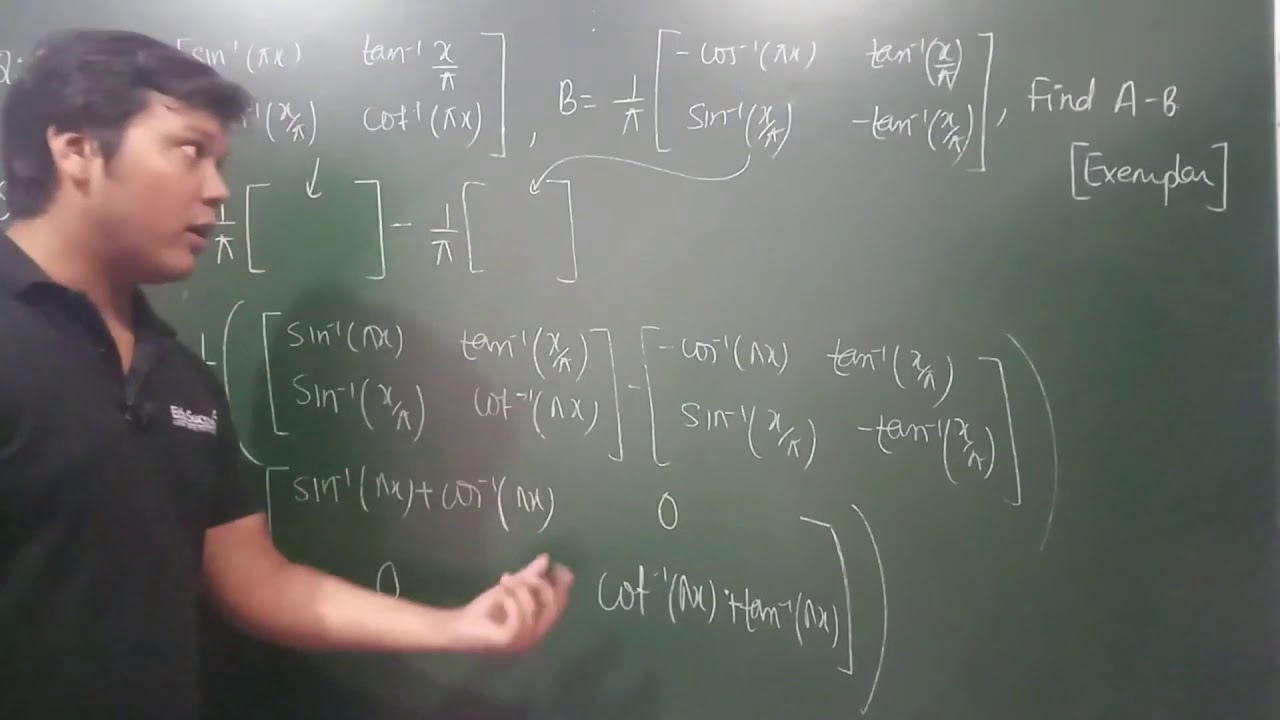 Q. [sin⁻¹(πx) tan⁻¹ x/π ⁻¹(x/π) cot⁻¹(πx)], B = 1/π [-cos⁻¹(πx) tan⁻¹(x/π) Sin⁻¹(x/π) -tan⁻¹(x/π)], Find A-B
[Exemplar]
1/π [ ] - 1/π [ ]
([sin⁻¹(πx) tan⁻¹(x/π) Sin⁻¹(x/π) cot⁻¹(πx)] - [-cos⁻¹(πx) tan⁻¹(x/π) Sin⁻¹(x/π) -tan⁻¹(x/π)])
[sin⁻¹(πx)+cos⁻¹(πx) 0
0 cot⁻¹(πx)+tan⁻¹(πx)])